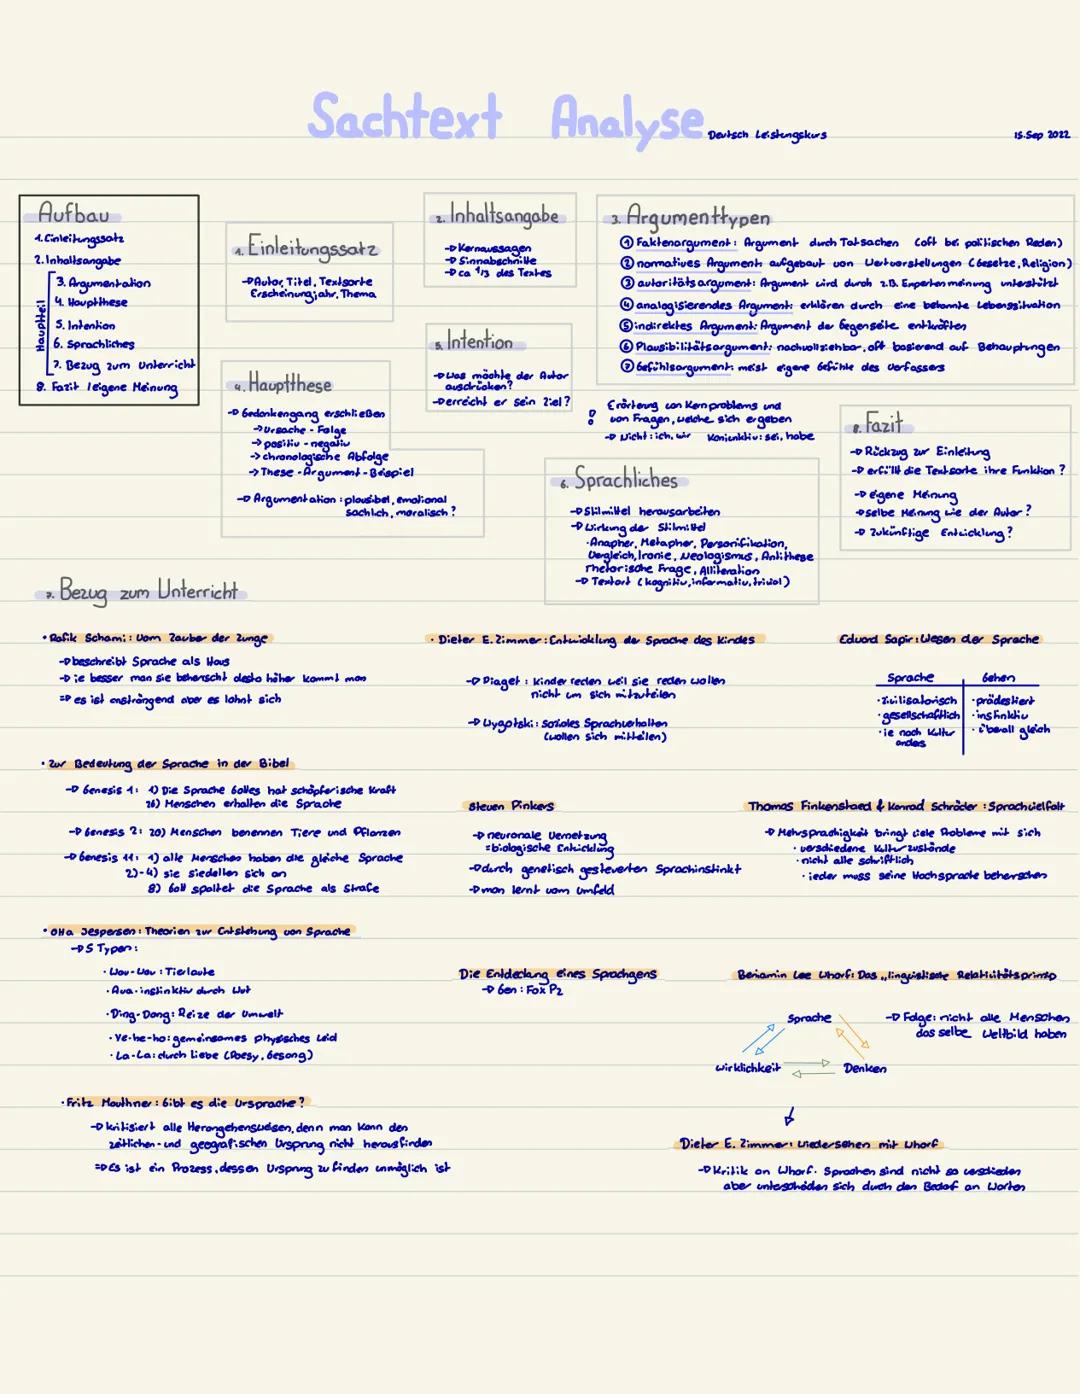 Sachtext Analyse
Deutsch Leistungskurs
15. Sep 2022
Aufbau
1. Einleitungssatz
2. Inhaltsangabe
Hauptteil
3. Argumentation
4. Hauptthese
5. Intention
6. Sprachliches
7. Bezug zum Unterricht
8. Fazit / eigene Meinung
1. Einleitungssatz
→ Autor, Titel, Textsorte
Erscheinungsjahr, Thema
2. Inhaltsangabe
→ Kernaussagen
→ Sinnabschnitte
→ ca 1/3 des Textes
3. Argumenttypen
① Faktenargument: Argument durch Tatsachen (oft bei politischen Reden)
② normatives Argument: aufgebaut von Wertvorstellungen (Gesetze, Religion)
③ autoritätsargument: Argument wird durch z.B. Expertenmeinung unterstützt
④ analogisierendes Argument: erklären durch eine bekannte Lebenssituation
⑤ indirektes Argument: Argument der Gegenseite entkräften
⑥ Plausibilitätsargument: nachvollziehbar, oft basierend auf Behauptungen
⑦ Gefühlsargument: meist eigene Gefühle des Verfassers
4. Hauptthese
→ Gedankengang erschließen
→ Ursache - Folge
→ positiv - negativ
→ chronologische Abfolge
→ These - Argument - Beispiel
→ Argumentation: plausibel, emotional
sachlich, moralisch?
5. Intention
→ Was möchte der Autor
ausdrücken?
→ erreicht er sein Ziel?
Erörterung von Kernproblems und
von Fragen, welche sich ergeben
→ Nicht: ich, wir Konjunktiv: sei, habe
6. Sprachliches
→ Stilmittel herausarbeiten
→ Wirkung der Stilmittel
· Anapher, Metapher, Personifikation,
Vergleich, Ironie, Neologismus, Antithese
rhetorische Frage, Alliteration
→ Textart (kognitiv, informativ, trivial)
8. Fazit
→ Rückzug zur Einleitung
→ erfüllt die Textsorte ihre Funktion?
→ eigene Meinung
→ selbe Meinung wie der Autor?
→ Zukünftige Entwicklung?
7. Bezug zum Unterricht
· Rafik Schami: Vom Zauber der Zunge
→ beschreibt Sprache als Haus
→ je besser man sie beherrscht desto höher kommt man
⇒ es ist anstrengend aber es lohnt sich
· Zur Bedeutung der Sprache in der Bibel
→ Genesis 1: 1) Die Sprache Gottes hat schöpferische Kraft
26) Menschen erhalten die Sprache
→ Genesis 2: 20) Menschen benennen Tiere und Pflanzen
→ Genesis 11: 1) alle Menschen haben die gleiche Sprache
2)-4) sie siedellen sich an
8) Gott spaltet die Sprache als Strafe
· Otto Jespersen: Theorien zur Entstehung von Sprache
→ 5 Typen:
· Wau-Wau: Tierlaute
· Aua: instinktiv durch Wut
· Ding-Dong: Reize der Umwelt
· Ye-he-ho: gemeinsames physisches Leid
· La-La: durch Liebe (Poesy, Gesang)
· Fritz Mauthner: Gibt es die Ursprache?
→ kritisiert alle Herangehensweisen, denn man kann den
zeitlichen- und geografischen Ursprung nicht herausfinden
⇒ Es ist ein Prozess, dessen Ursprung zu finden unmöglich ist
· Dieter E. Zimmer: Entwicklung der Sprache des Kindes
→ Piaget: Kinder reden weil sie reden wollen
nicht um sich mitzuteilen
→ Wygotski: Soziales Sprachverhalten
(wollen sich mitteilen)
Steven Pinkers
→ neuronale Vernetzung
= biologische Entwicklung
→ durch genetisch gesteuerten Sprachinstinkt
→ man lernt vom Umfeld
Die Entdeckung eines Sprachgens
→ Gen: FoxP2
Eduard Sapir: Wesen der Sprache
Sprache Gehen
· zivilisatorisch · prädestiert
· gesellschaftlich · instinktiv
· je nach Kultur · überall gleich
anders
Thomas Finkenstaed & Konrad Schröder: Sprachvielfalt
→ Mehrsprachigkeit bringt viele Probleme mit sich
· verschiedene Kulturzustände
· nicht alle schriftlich
· jeder muss seine Hochsprache beherrschen
Benjamin Lee Whorf: Das „linguistische Relativitätsprinzip
Sprache
Wirklichkeit
Denken
→ Folge: nicht alle Menschen
das selbe Weltbild haben
Dieter E. Zimmer: Wiedersehen mit Whorf
→ Kritik an Whorf. Sprachen sind nicht so verschieden
aber unterscheiden sich durch den Bedarf an Worten